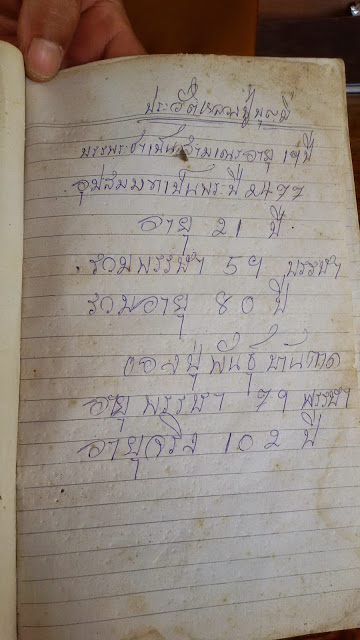 ประวัติหลวงปู่บุญมี
บรรพระชาเป็นสามเณรอายุ 19 ปี
อุปสมบทเป็นพระปี 2477
อายุ 21 ปี
รวมพรรษา 59 พรรษา
รวมอายุ 80 ปี
หลวงปู่พันธุ์
อายุ พรรษา 79 พรรษา
อายุจริง 102 ปี